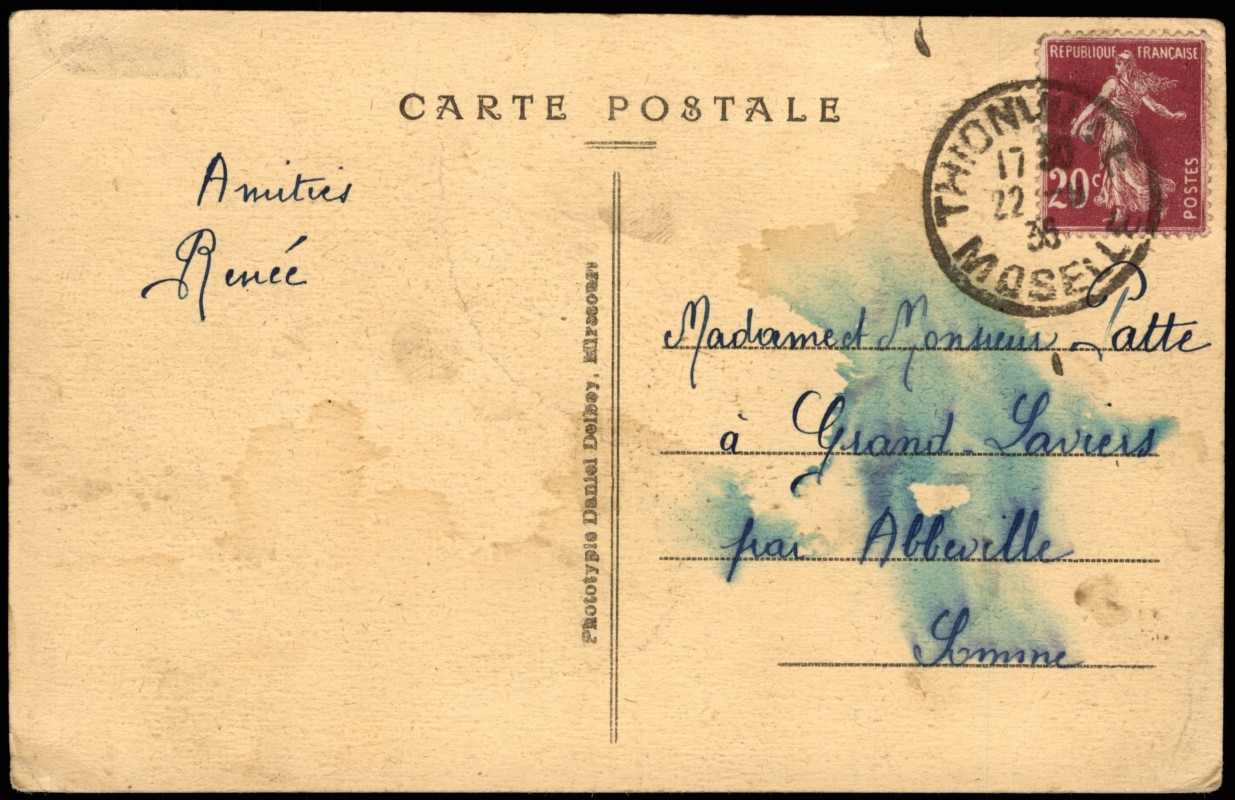 CARTE POSTALE
Amitiés
Renée
Phototypie Daniel Delboy, Mirecourt
RÉPUBLIQUE FRANÇAISE
20c
POSTES
THIONVILLE
17
22
MOSELLE
Madame et Monsieur Patte
à Grand-Laviers
par Abbeville
Somme